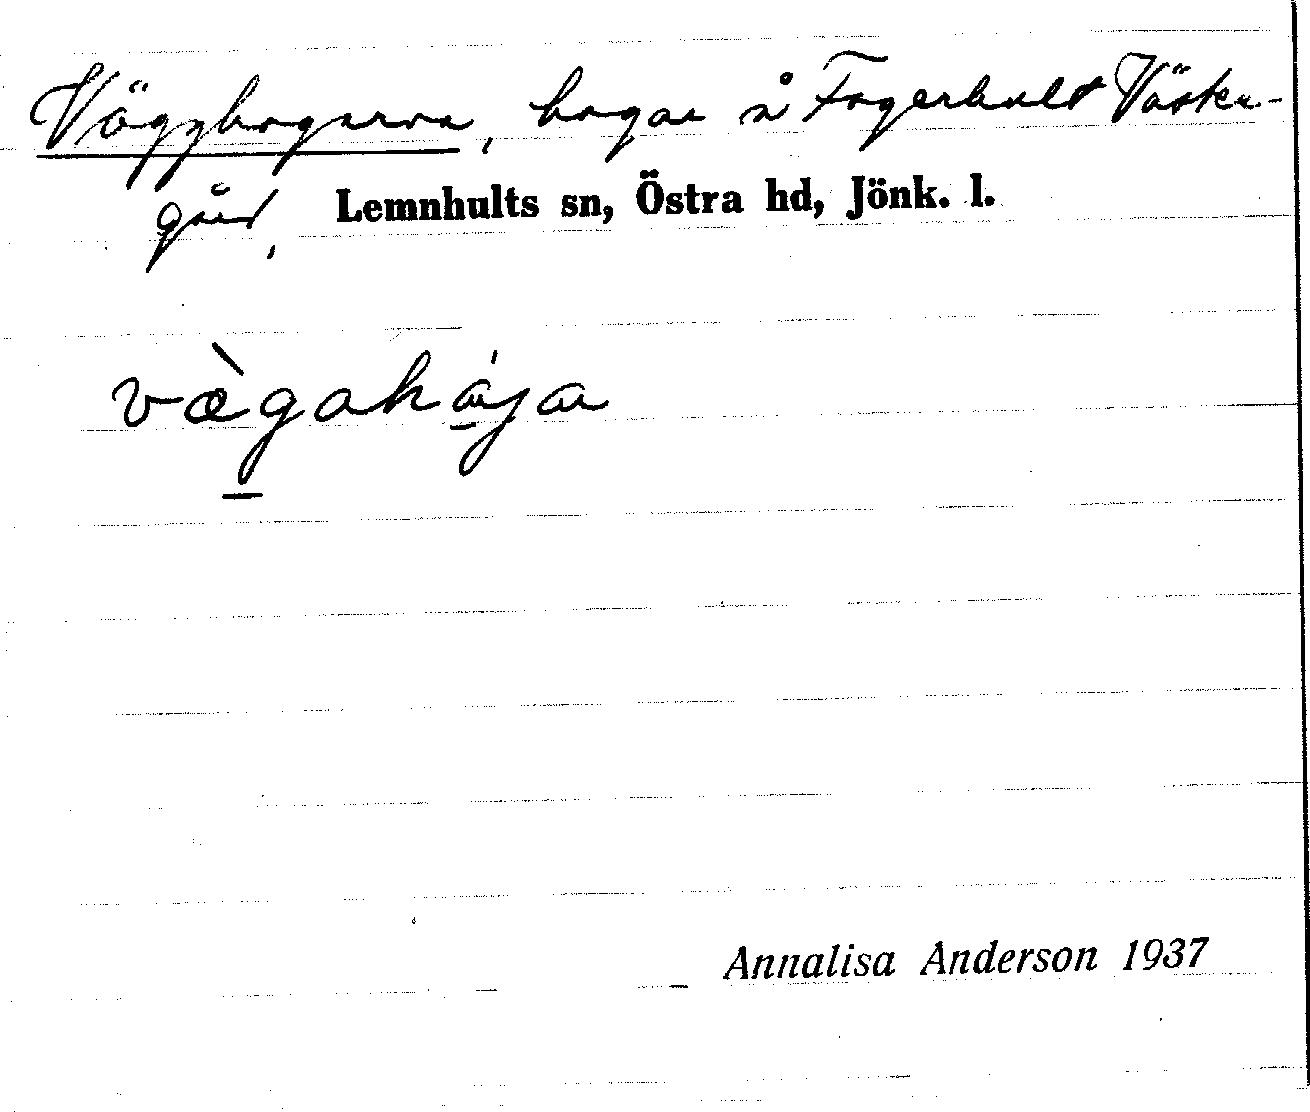 Vägghagarna, hagar å Fagerhult Väster-
gård, Lemnhults sn, Östra hd, Jönk. l.
væ̀gahája
Annalisa Anderson 1937